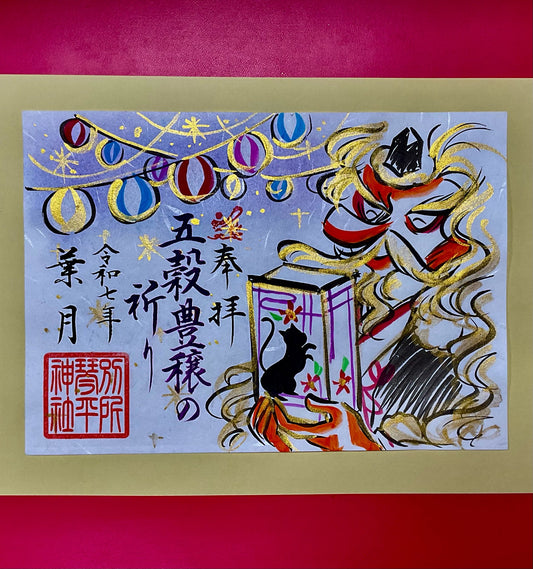 奉拝
五穀豊穣の
祈り
令和七年
葉月
別所
琴平
神社